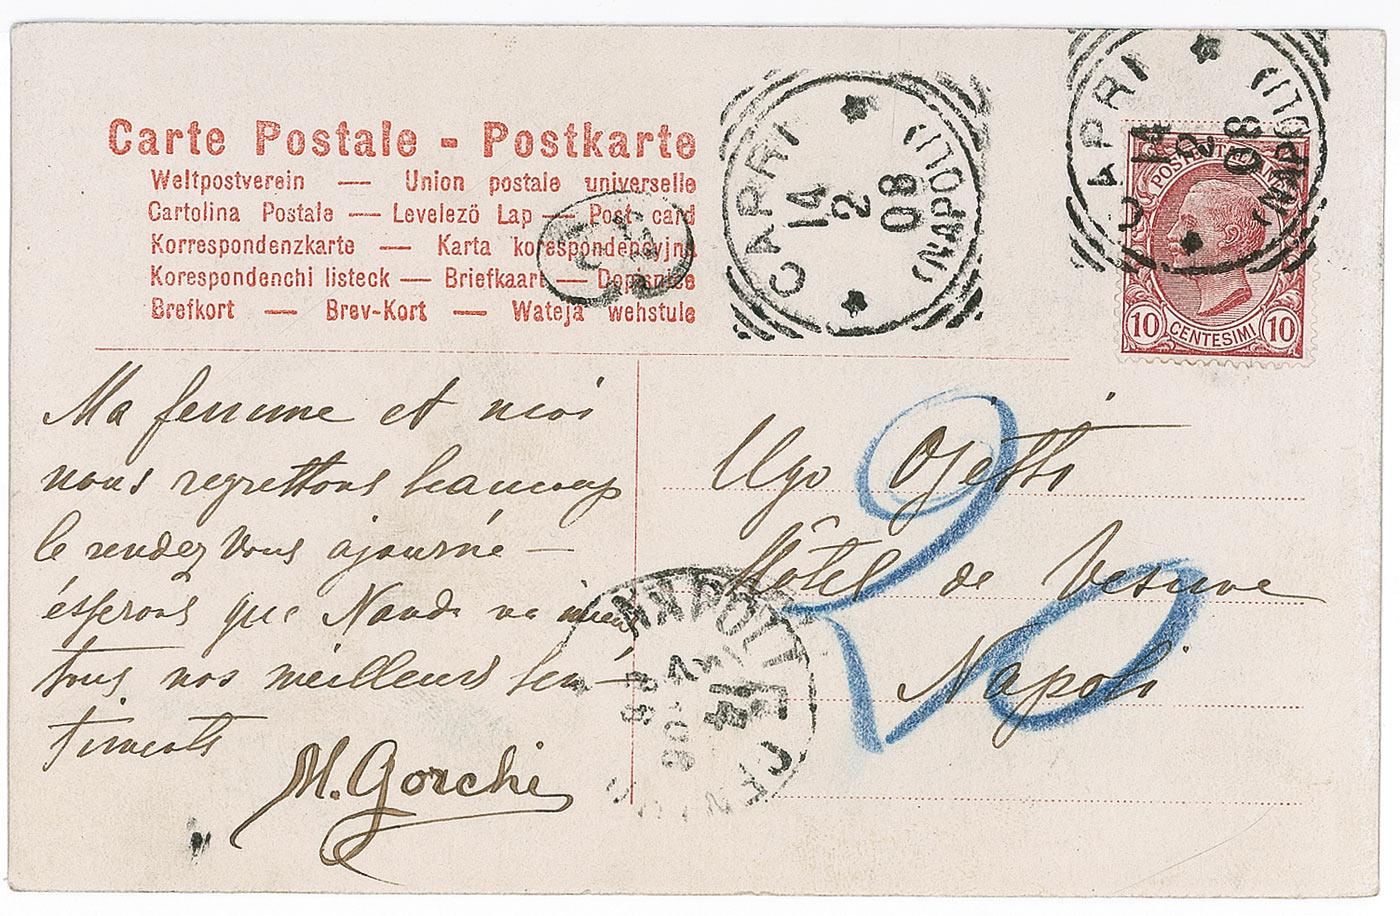 Carte Postale - Postkarte
Weltpostverein — Union postale universelle
Cartolina Postale — Levelezö Lap — Post card
Korrespondenzkarte — Karta korespondencyjna
Korespondenchi listeck — Briefkaart — Dopisnice
Brefkort — Brev-Kort — Wateja wehstule
CAPRI
14
2
08
(NAPOLI)
CAPRI
14
2
08
(NAPOLI)
POSTE
10 CENTESIMI 10
Ma femme et moi
nous regrettons beaucoup
le rendez vous ajourné —
ésperons que Nanda va mieux
tous nos meilleurs sen-
timents
M. Gorchi
Ugo Ojetti
Hôtel de Vesuve
Napoli
20
NAPOLI